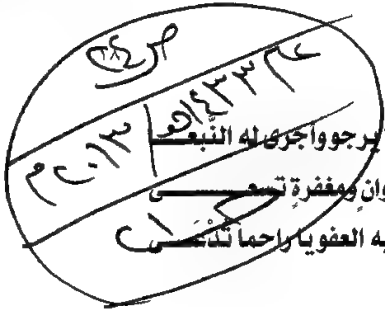 ١٤٣٣هـ
٢٠١٣م
يرجو وأجرى له النبعـــــا
وانٍ ومغفرةٍ تسعـــــى
يه العفو يا راحماً تُدْعَـــــى